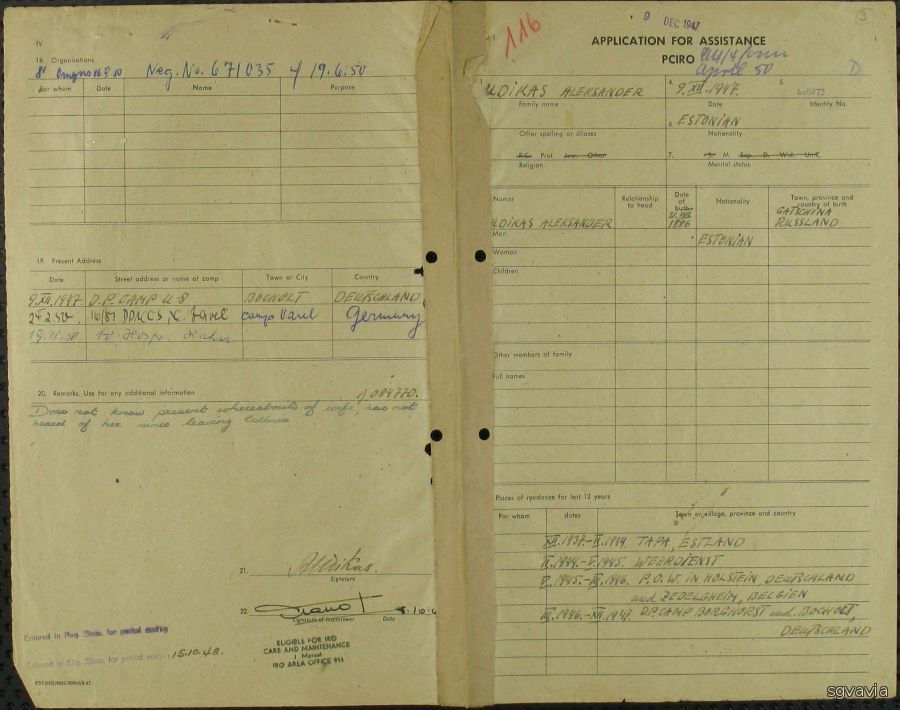 IV
18. Organisations
Neg. No. 671035 19.6.50
For whom Date Name Purpose
19. Present Address
Date Street address or name of camp Town or City Country
9.XII.1947. D.P. CAMP U-8 BOCHOLT DEUTSCHLAND
24.2.50. Camp Varel Germany
20. Remarks. Use for any additional information 084770.
Does not know present whereabouts of wife, has not
heard of her since leaving Estonia
21.
Signature
22.
Signature of Interviewer Date
ELIGIBLE FOR IRO
CARE AND MAINTENANCE
IRO AREA OFFICE
Entered in Reg. Stats. for period ending
Entered in Elig. Stats. for period ending 15.10.48.
9 DEC 1947
116
3
APPLICATION FOR ASSISTANCE
PCIRO
April 50
D
UDIKAS ALEKSANDER 4. 9.XII.1947. 5. 408273
Family name Date Identity No.
6. ESTONIAN
Other spelling or aliases Nationality
R.C. Prot. Jew. Other 7. S. M. Sep. D. Wid. Unk.
Religion Marital status
Names Relationship to head Date of birth Nationality Town, province and country of birth
UDIKAS ALEKSANDER 1886 GATSCHINA RUSSLAND
Man ESTONIAN
Woman
Children
Other members of family
Full names
Places of residence for last 12 years
For whom dates Town or village, province and country
XII.1937.-II.1944. TAPA, ESTLAND
II.1944.-V.1945. WEHRDIENST
V.1945.-III.1946. P.O.W. IN HOLSTEIN, DEUTSCHLAND
und ZEDELGHEIM, BELGIEN
III.1946.-XII.1947. D.P. CAMP BORGHORST und BOCHOLT,
DEUTSCHLAND
sgvavia